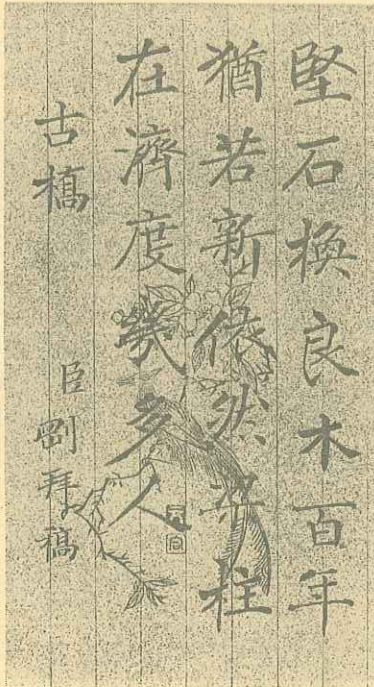 堅石換良木百年
猶若新依然柱
在濟度幾多人
古橋 臣劉拜稿